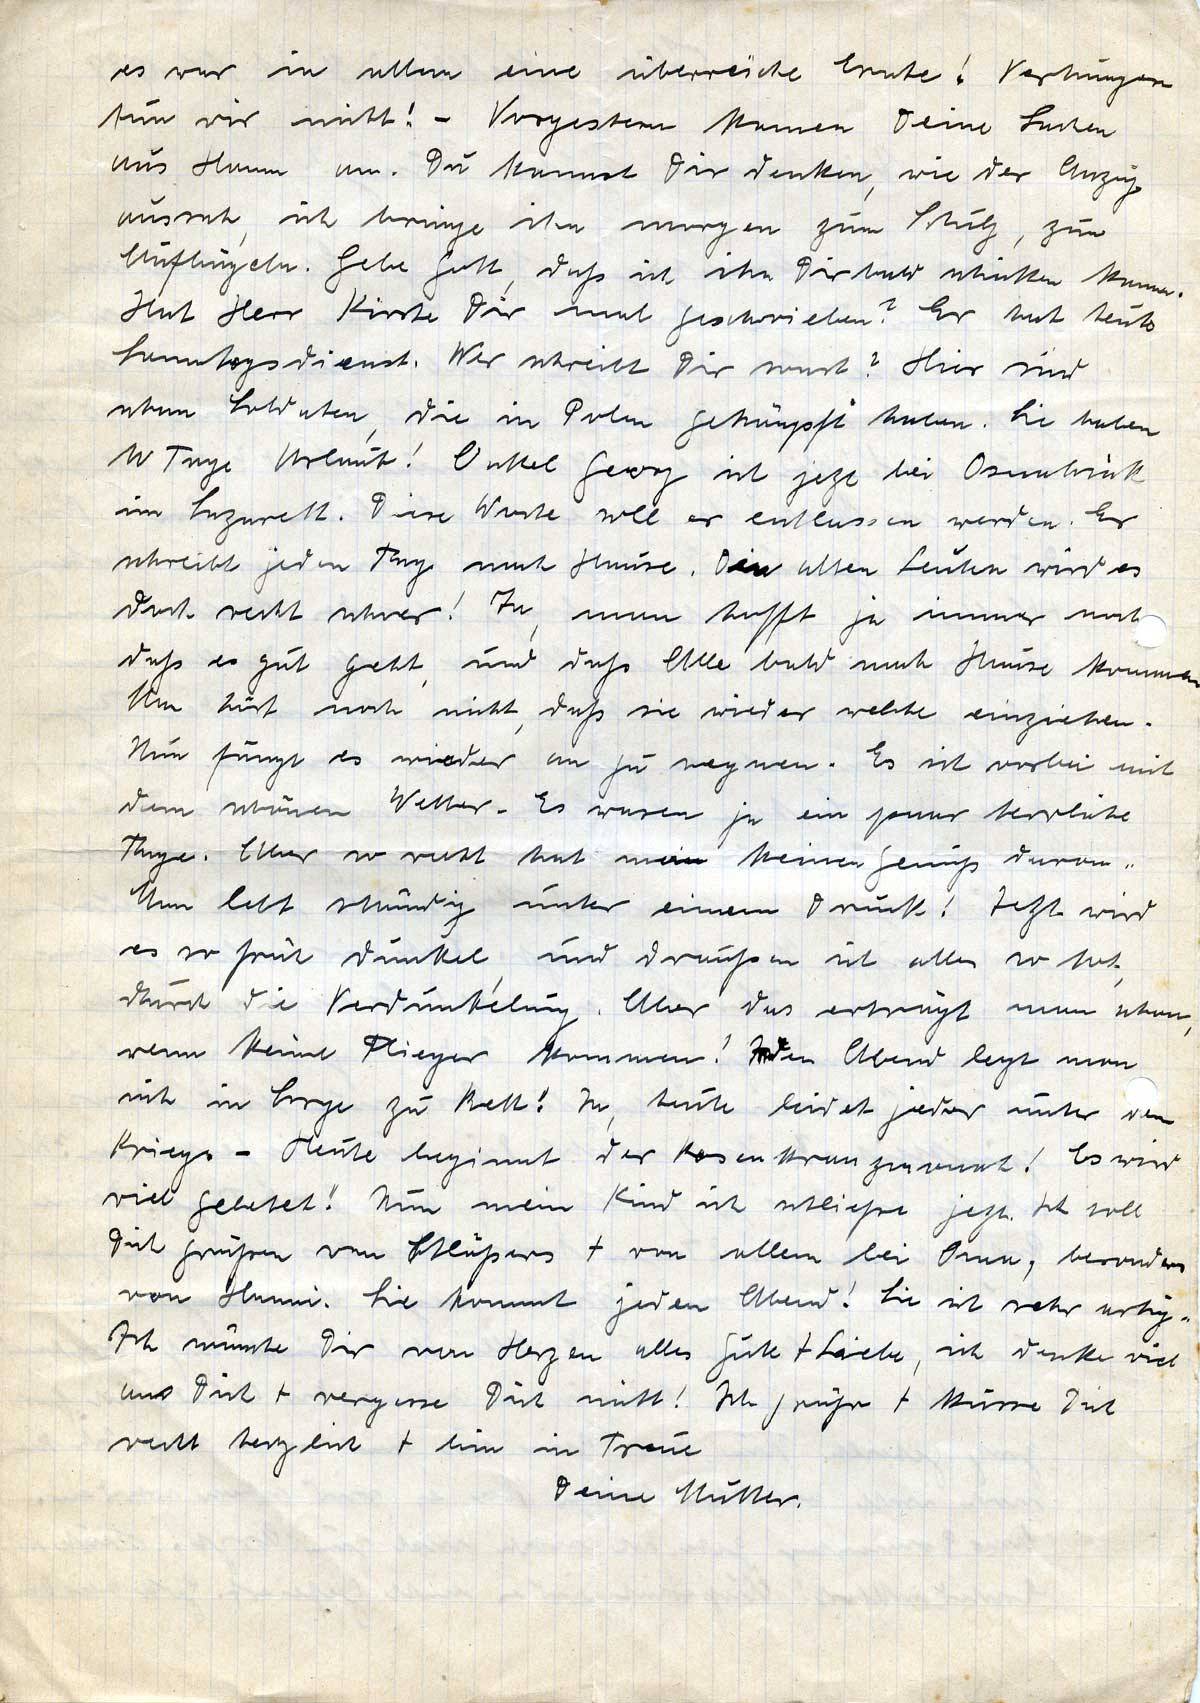 es war in allem eine überreiche Ernte! Verhungern
tun wir nicht! - Vorgestern kamen Deine Sachen
aus Hamm an. Du kannst Dir denken, wie der Anzug
aussah, ich bringe ihn morgen zum Schulz, zum
Aufbügeln. Gebe Gott, daß ich ihn Dir bald schicken kann.
Hat Herr Kirste Dir mal geschrieben? Er hat heute
Sonntagsdienst. Wer schreibt Dir sonst? Hier sind
schon Soldaten, die in Polen gekämpft haben. Sie haben
10 Tage Urlaub! Onkel Georg ist jetzt bei Osnabrück
im Lazarett. Diese Woche soll er entlassen werden. Er
schreibt jeden Tag nach Hause. Den alten Leuten wird es
doch recht schwer! Ja, man hofft ja immer noch
daß es gut geht, und daß Alle bald nach Hause kommen
Man hört noch nicht, daß sie wieder welche einziehen.
Nun fängt es wieder an zu regnen. Es ist vorbei mit
dem schönen Wetter. Es waren ja ein paar herrliche
Tage. Aber so recht hat man keinen Genuß davon.
Man lebt ständig unter einem Druck! Jetzt wird
es so früh dunkel, und draußen ist alles so tot,
durch die Verdunkelung. Aber das erträgt man schon,
wenn keine Flieger kommen! Jeden Abend legt man
sich in Sorge zu Bett! Ja, heute leidet jeder unter dem
Krieg. - Heute beginnt der Rosenkranzmonat! Es wird
viel gebetet! Nun mein Kind ich schließe jetzt. Ich soll
Dich grüßen von Schlüßers + von allem bei Oma, besonders
von Hanni. Sie kommt jeden Abend! Sie ist sehr artig.
Ich wünsche Dir von Herzen alles Gute + Liebe, ich denke viel
an Dich + vergesse Dich nicht! Ich grüße + küsse Dich
recht herzlich + bin in Treue
Deine Mutter.